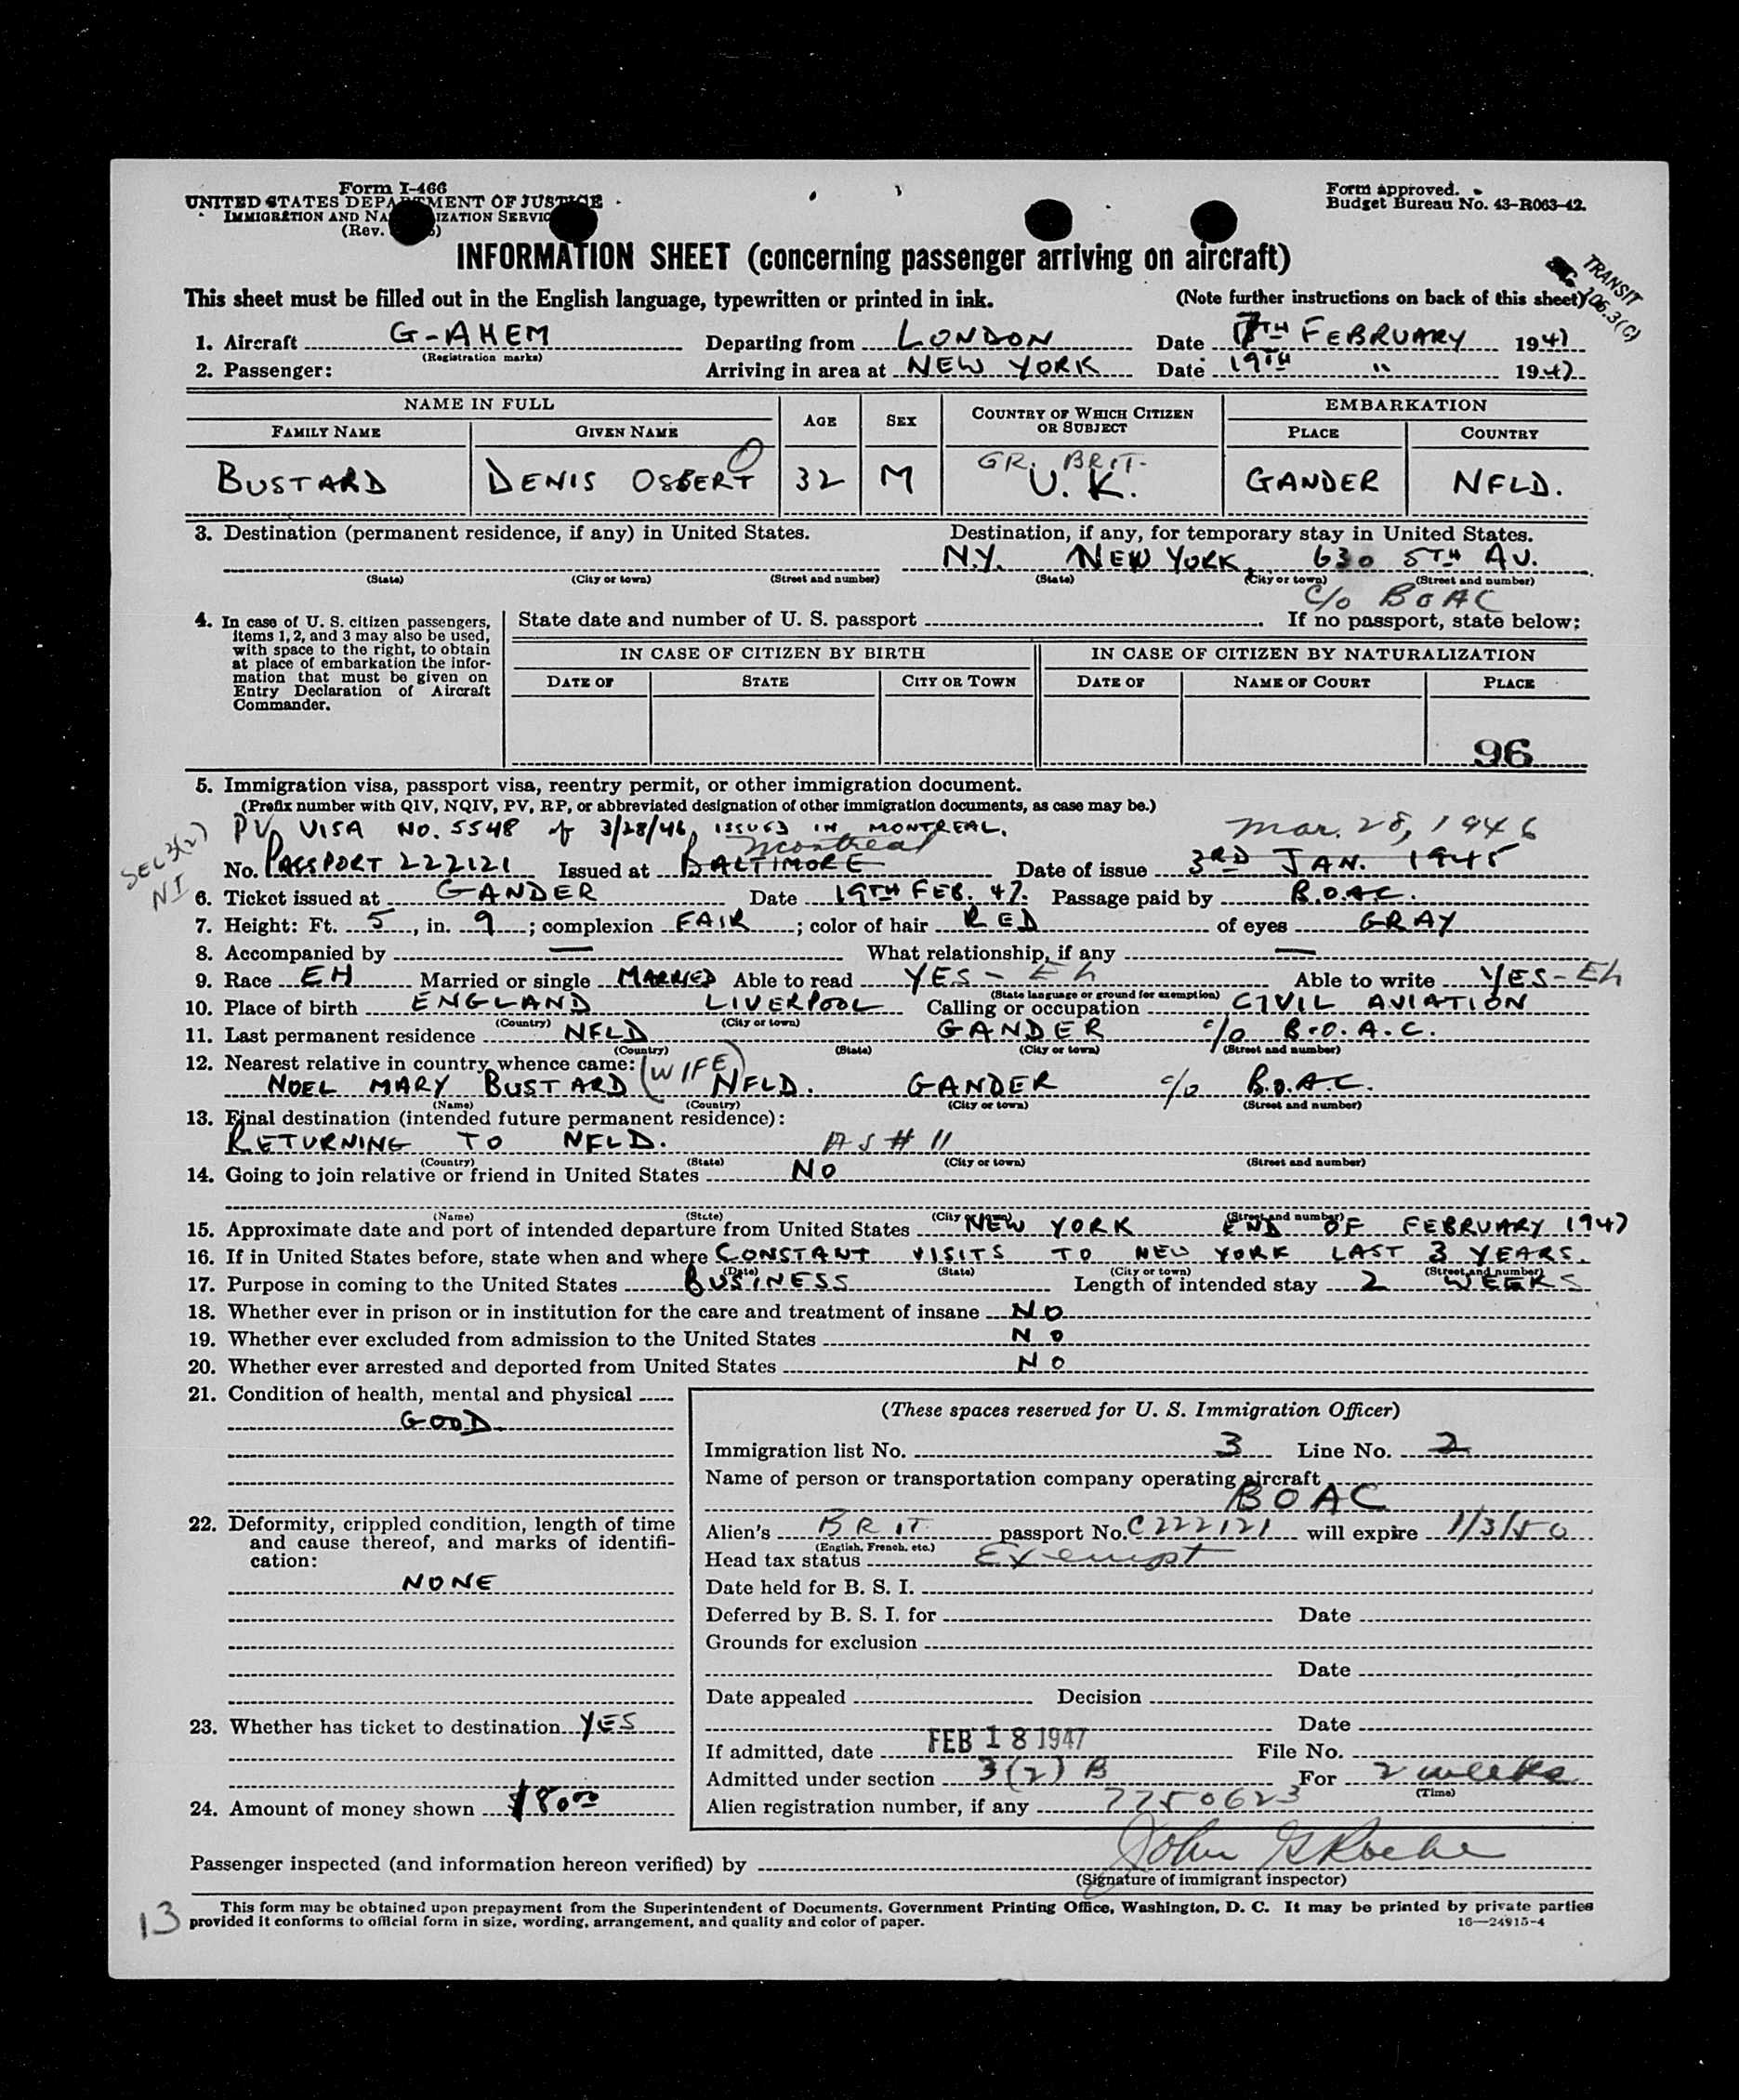 Form I-466
UNITED STATES DEPARTMENT OF JUSTICE
IMMIGRATION AND NA IZATION SERVIC
(Rev.
Form approved.
Budget Bureau No. 43-R063-42.
INFORMATION SHEET (concerning passenger arriving on aircraft)
TRANSIT
106.3(C)
This sheet must be filled out in the English language, typewritten or printed in ink. (Note further instructions on back of this sheet)
1. Aircraft G-AHEM Departing from LONDON Date 17TH FEBRUARY 1947
(Registration marks)
2. Passenger: Arriving in area at NEW YORK Date 19TH " 1947
NAME IN FULL AGE SEX COUNTRY OF WHICH CITIZEN OR SUBJECT EMBARKATION
FAMILY NAME GIVEN NAME PLACE COUNTRY
GR. BRIT.
BUSTARD DENIS OSBERT 32 M U.K. GANDER NFLD.
3. Destination (permanent residence, if any) in United States. Destination, if any, for temporary stay in United States.
N.Y. NEW YORK, 630 5TH AV.
(State) (City or town) (Street and number) (State) (City or town) (Street and number)
C/o BOAC
4. In case of U. S. citizen passengers, items 1, 2, and 3 may also be used, with space to the right, to obtain at place of embarkation the information that must be given on Entry Declaration of Aircraft Commander.
State date and number of U. S. passport If no passport, state below:
IN CASE OF CITIZEN BY BIRTH IN CASE OF CITIZEN BY NATURALIZATION
DATE OF STATE CITY OR TOWN DATE OF NAME OF COURT PLACE
96
5. Immigration visa, passport visa, reentry permit, or other immigration document.
(Prefix number with QIV, NQIV, PV, RP, or abbreviated designation of other immigration documents, as case may be.)
PV VISA NO. 5548 of 3/28/46, ISSUED IN MONTREAL.
SEC 3(2)
NI
Montreal Mar. 28, 1946
No. PASSPORT 222121 Issued at BALTIMORE Date of issue 3RD JAN. 1945
6. Ticket issued at GANDER Date 19TH FEB. 47. Passage paid by B.O.A.C.
7. Height: Ft. 5, in. 9; complexion FAIR; color of hair RED of eyes GRAY
8. Accompanied by — What relationship, if any —
9. Race EH Married or single MARRIED Able to read YES - Eh Able to write YES - Eh
(State language or ground for exemption)
10. Place of birth ENGLAND LIVERPOOL Calling or occupation CIVIL AVIATION
(Country) (City or town)
11. Last permanent residence NFLD GANDER c/o B.O.A.C.
(Country) (State) (City or town) (Street and number)
12. Nearest relative in country whence came: (WIFE)
NOEL MARY BUSTARD NFLD. GANDER c/o B.O.A.C.
(Name) (Country) (City or town) (Street and number)
13. Final destination (intended future permanent residence):
RETURNING TO NFLD. AS # 11
(Country) (State) (City or town) (Street and number)
14. Going to join relative or friend in United States NO
(Name) (State) (City or town) (Street and number)
15. Approximate date and port of intended departure from United States NEW YORK END OF FEBRUARY 1947
16. If in United States before, state when and where CONSTANT VISITS TO NEW YORK LAST 3 YEARS.
(Date) (State) (City or town) (Street and number)
17. Purpose in coming to the United States BUSINESS Length of intended stay 2 WEEKS
18. Whether ever in prison or in institution for the care and treatment of insane NO
19. Whether ever excluded from admission to the United States NO
20. Whether ever arrested and deported from United States NO
21. Condition of health, mental and physical
GOOD
22. Deformity, crippled condition, length of time and cause thereof, and marks of identification:
NONE
23. Whether has ticket to destination YES
24. Amount of money shown $80.00
(These spaces reserved for U. S. Immigration Officer)
Immigration list No. 3 Line No. 2
Name of person or transportation company operating aircraft
BOAC
Alien's BRIT. passport No. C222121 will expire 1/3/50
(English, French, etc.)
Head tax status Exempt
Date held for B. S. I.
Deferred by B. S. I. for Date
Grounds for exclusion
Date
Date appealed Decision
Date
If admitted, date FEB 18 1947 File No.
Admitted under section 3(2) B For 2 weeks
(Time)
Alien registration number, if any 7750623
Passenger inspected (and information hereon verified) by John G Roche
(Signature of immigrant inspector)
This form may be obtained upon prepayment from the Superintendent of Documents, Government Printing Office, Washington, D. C. It may be printed by private parties
provided it conforms to official form in size, wording, arrangement, and quality and color of paper. 16—24915-4
13